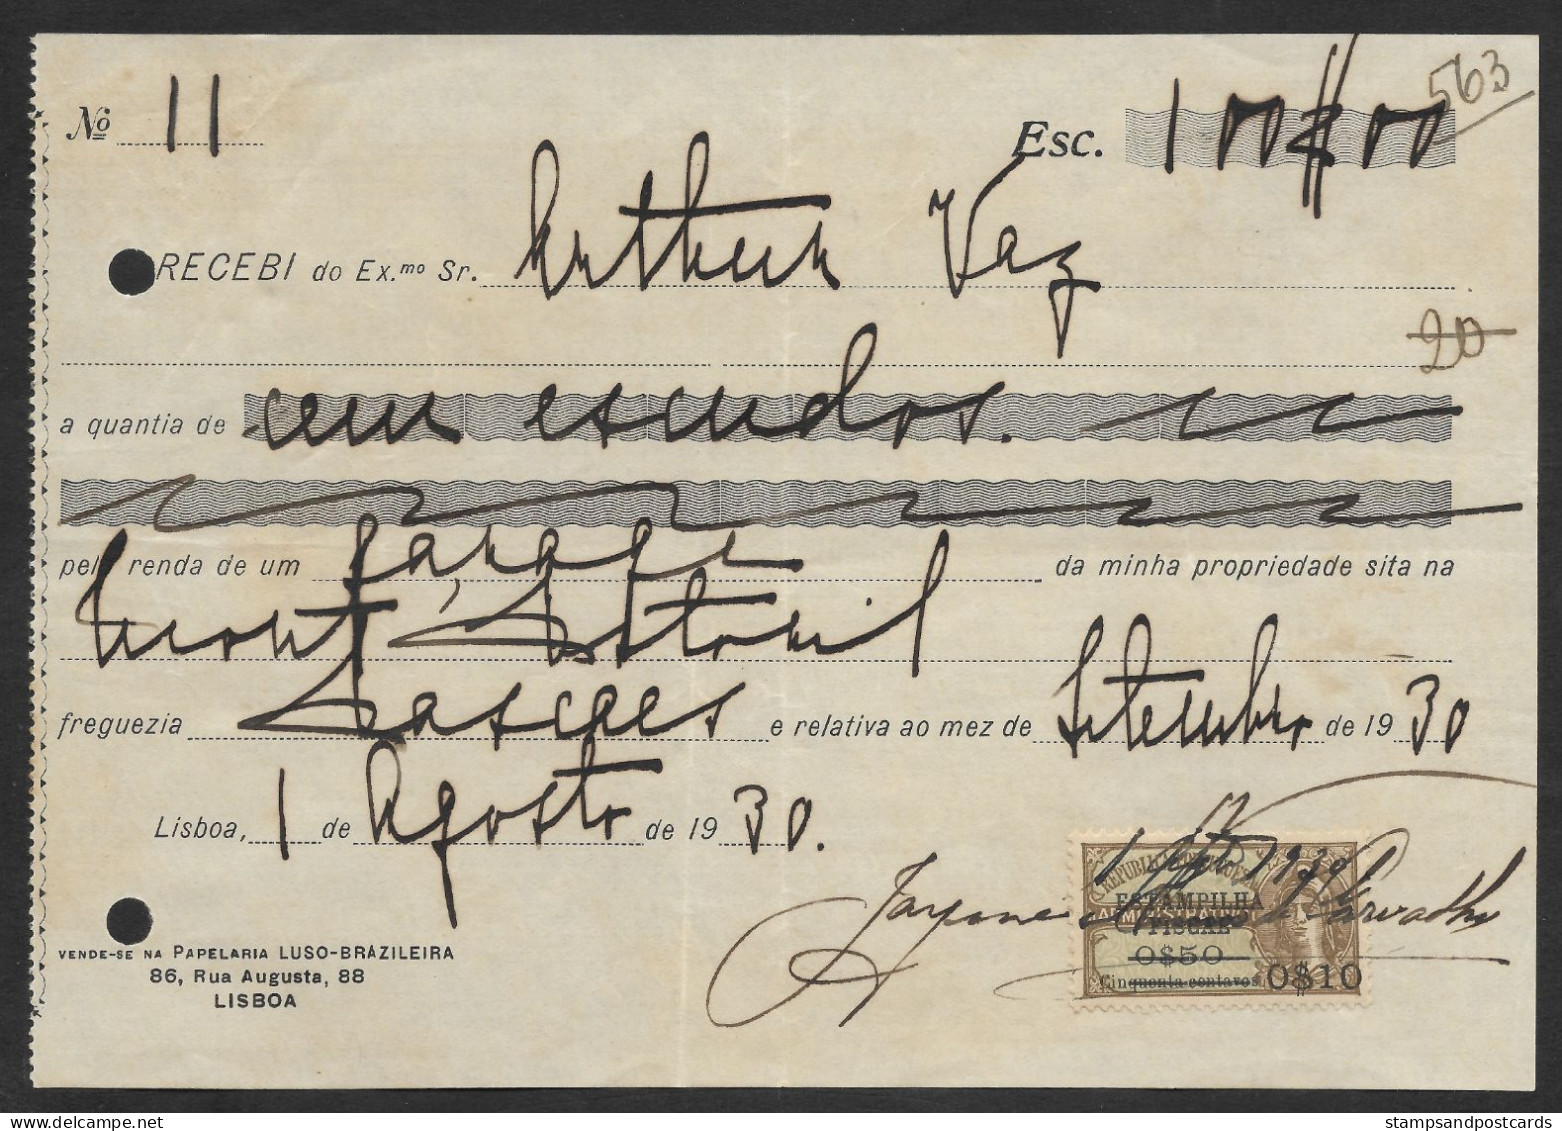 Nº 11 Esc. 100$00 563
RECEBI do Ex.mo Sr. Arthur Vaz
20
a quantia de cem escudos.
pela renda de um garage da minha propriedade sita na
Mont'Estoril
freguezia Cascaes e relativa ao mez de Setembro de 1930
Lisboa, 1 de Agosto de 1930.
1 Agto 1930
REPUBLICA PORTUGUESA
ESTAMPILHA
FISCAL
0$50
Cinquenta centavos 0$10
Carvalho
VENDE-SE NA PAPELARIA LUSO-BRAZILEIRA
86, Rua Augusta, 88
LISBOA
stampsandpostcards